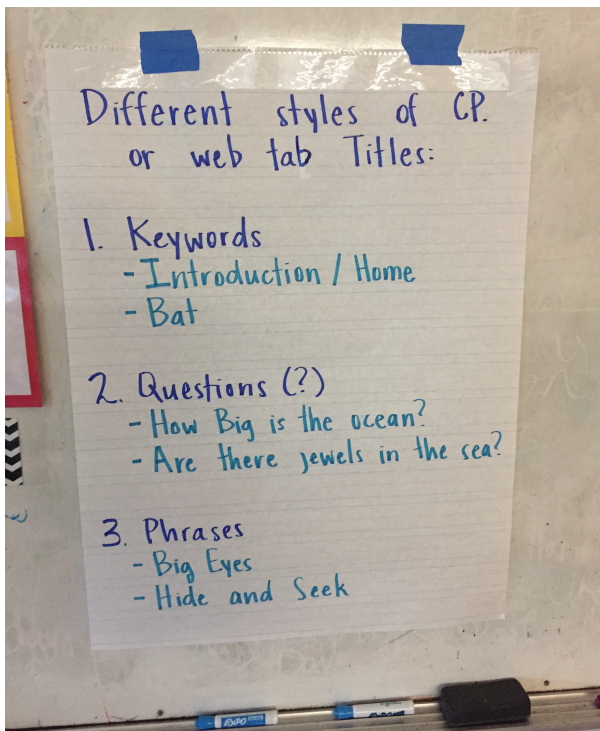 Different styles of CP.
or web tab Titles:
1. Keywords
- Introduction / Home
- Bat
2. Questions (?)
- How Big is the ocean?
- Are there jewels in the sea?
3. Phrases
- Big Eyes
- Hide and Seek
EXPO
EXPO